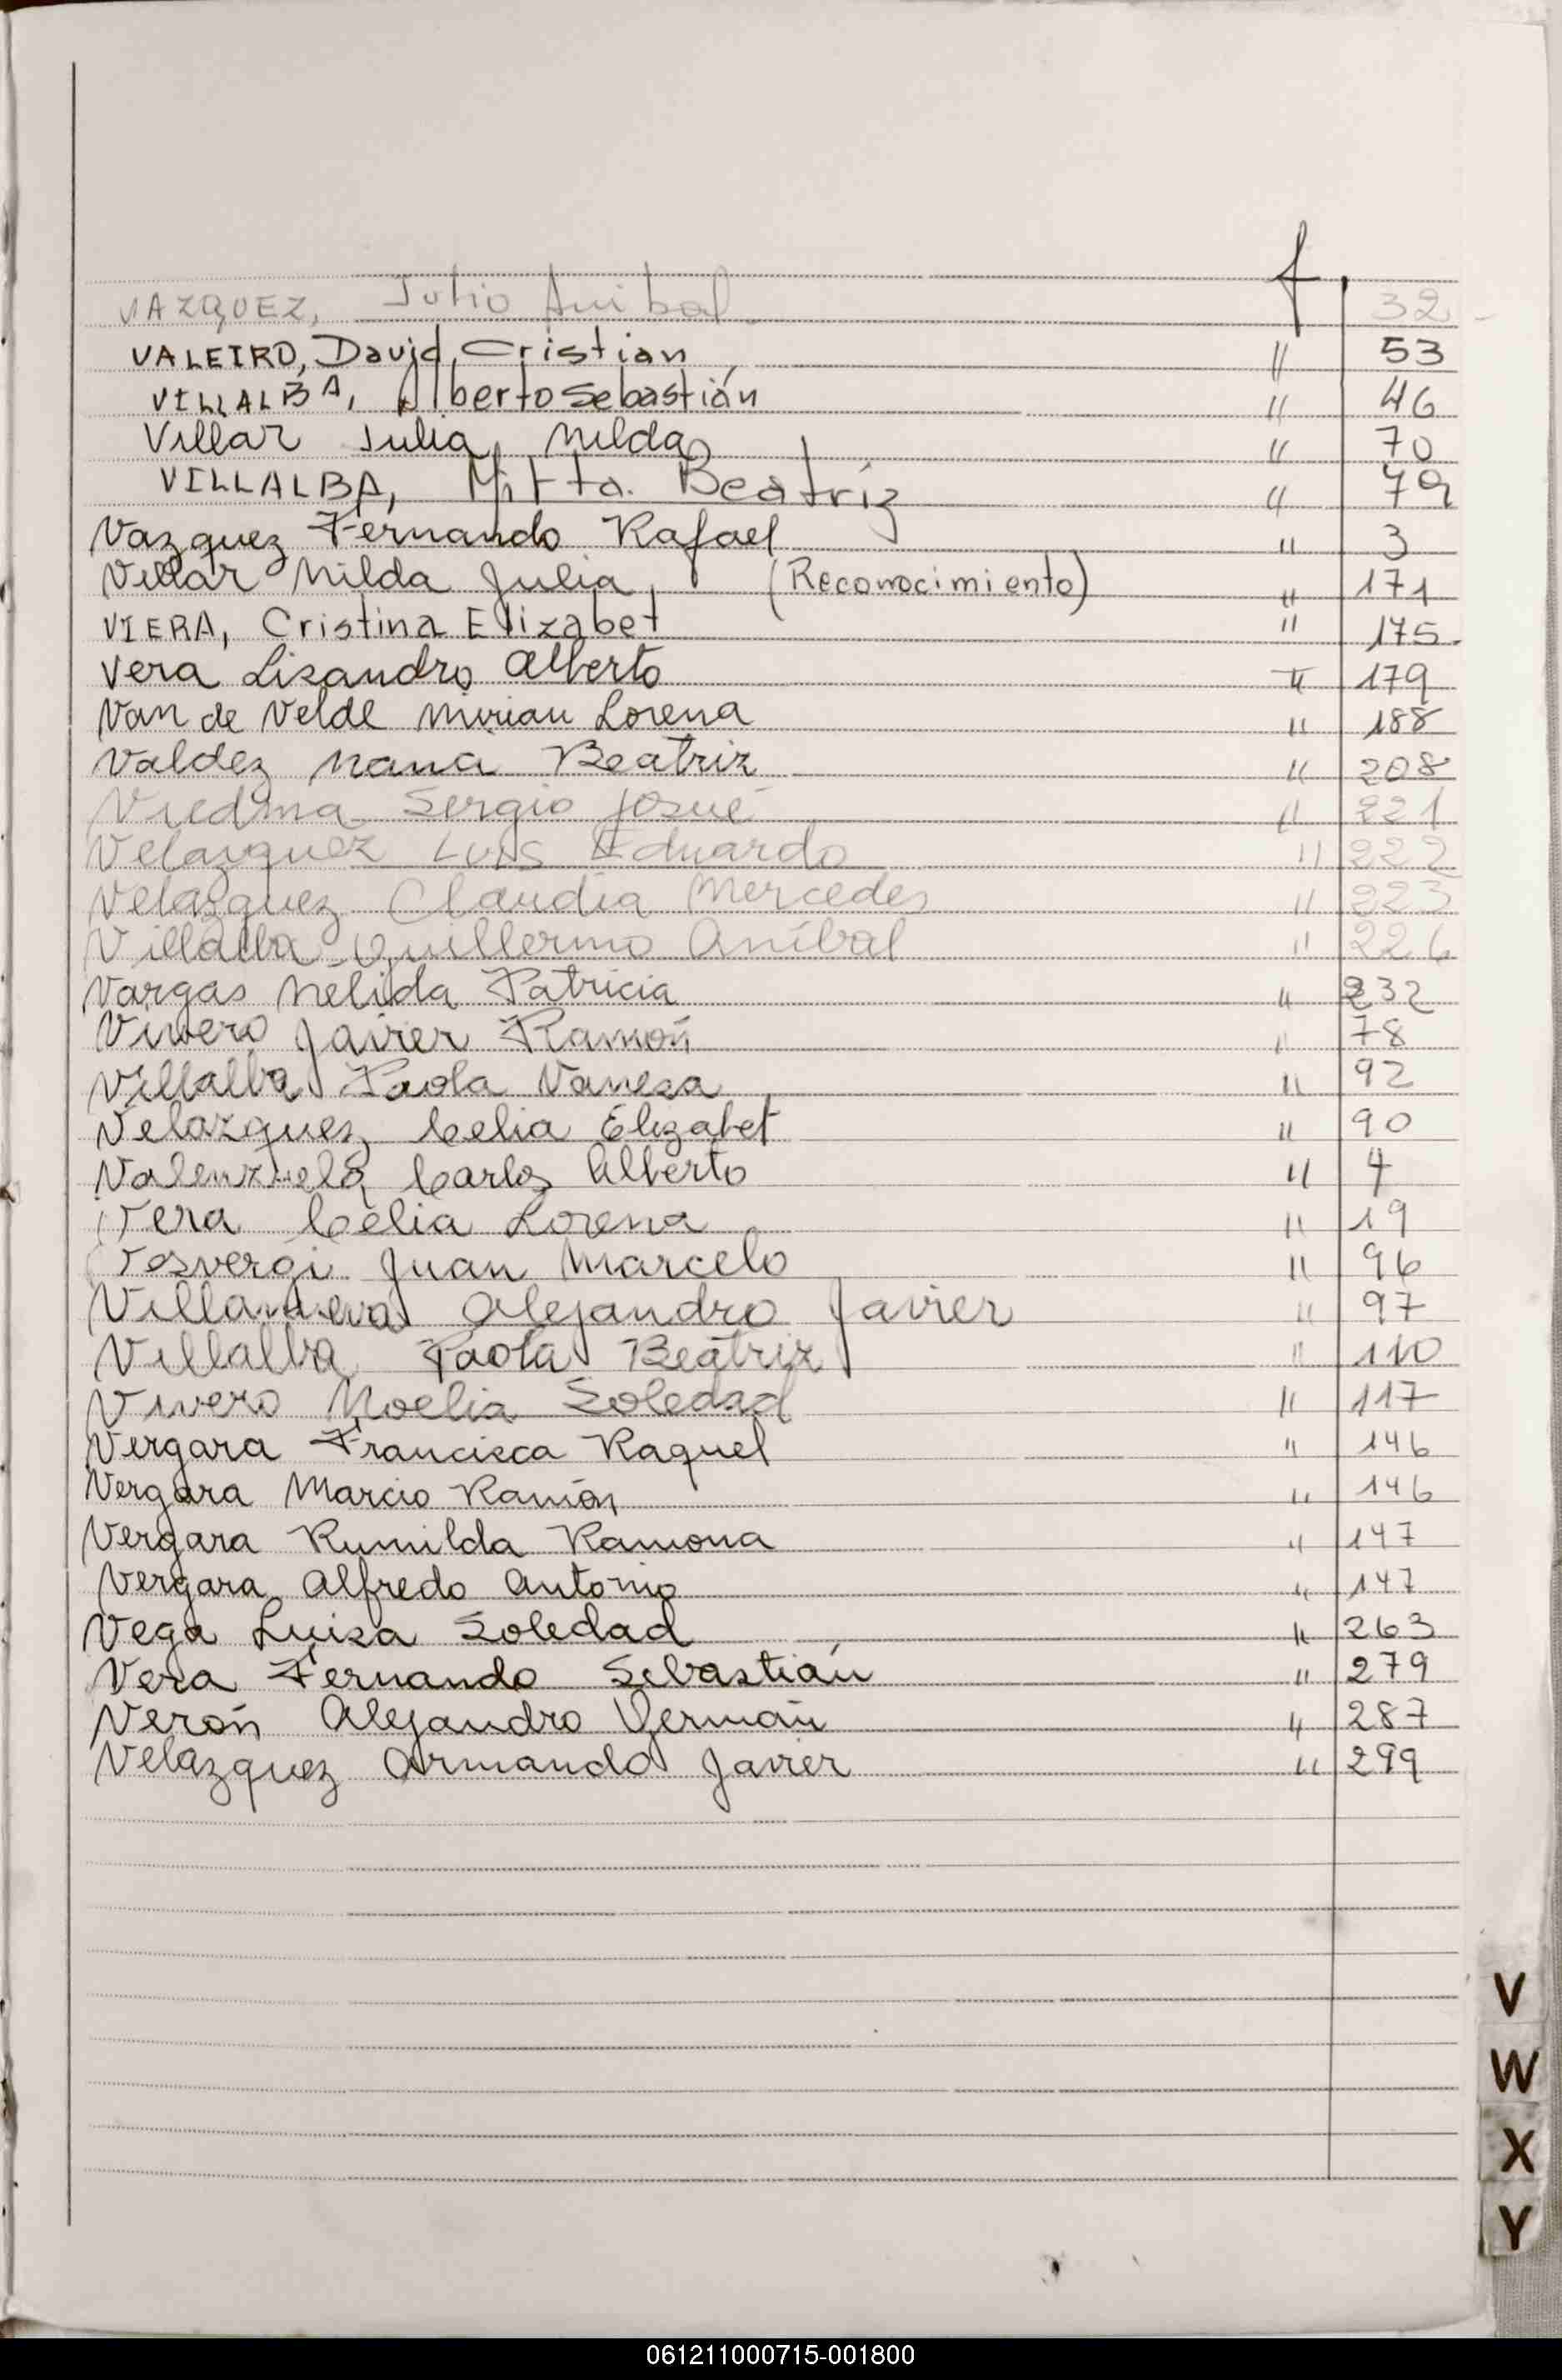 VAZQUEZ, Julio Anibal f. 32
VALEIRO, David Cristian, " 53
VILLALBA, Alberto Sebastián " 46
Villar Julia Nilda " 70
VILLALBA, Mirta Beatriz " 79
Vazquez Fernando Rafael " 3
Villar Nilda Julia, (Reconocimiento) " 171
VIERA, Cristina Elizabet " 175
Vera Lisandro Alberto " 179
Van de Velde Mirian Lorena " 188
Valdez Maria Beatriz " 208
Viedma Sergio Josué " 221
Velazquez Luis Eduardo " 222
Velazquez Claudia Mercedes " 223
Villalba Guillermo Aníbal " 226
Vargas Nelida Patricia " 232
Vivero Javier Ramón " 78
Villalba Paola Vanesa " 92
Velazquez Celia Elizabet " 90
Valenzuela Carlos Alberto " 4
Vera Celia Lorena " 19
Juan Marcelo " 96
Villanueva Alejandro Javier " 97
Villalba Paola Beatriz " 110
Vivero Noelia Soledad " 117
Vergara Francisca Raquel " 146
Vergara Marcio Ramón " 146
Vergara Rumilda Ramona " 147
Vergara Alfredo Antonio " 147
Vega Luisa Soledad " 263
Vera Fernando Sebastián " 279
Verón Alejandro Germán " 287
Velazquez Armando Javier " 299
V
W
X
Y
061211000715-001800